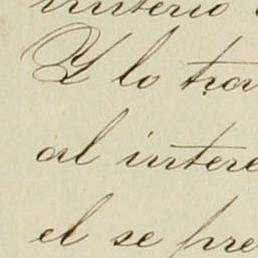 Y lo tra
al intere
el se pre